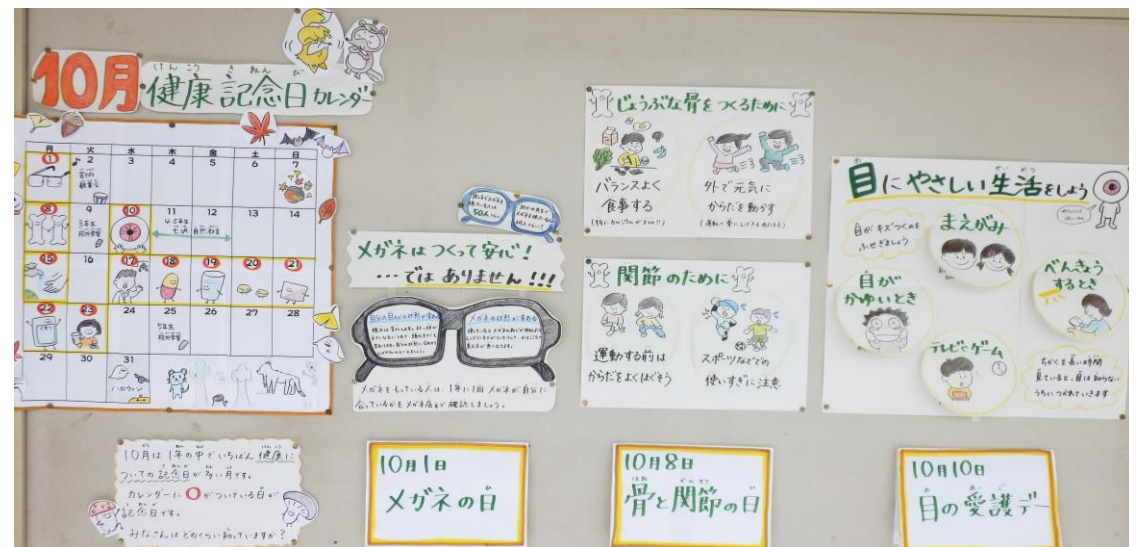 10月
けんこうきねんび
健康記念日カレンダー
月 火 水 木 金 土 日
1 2 3 4 5 6 7
8 9 10 11 12 13 14
3年生
校外学習
4・5年生
15 16 17 18 19 20 21
22 23 24 25 26 27 28
5年生
校外学習
29 30 31
ハロウィン
10月は1年の中でいちばん健康に
ついての記念日が多い月です。
カレンダーに○がついている日が
記念日です。
みなさんはどのくらい知っていますか?
メガネはつくって安心!
…ではありません!!!
自分の目などの状態が変わる
メガネの状態が変わる
メガネをもっている人は、1年に1回メガネが自分に
合っているかをメガネ店で確認しましょう。
10月1日
メガネの日
じょうぶな骨をつくるために
バランスよく
食事する
外で元気に
からだを動かす
関節のために
運動する前は
からだをよくほぐそう
スポーツなどでの
使いすぎに注意
10月8日
ほね かんせつ
骨と関節の日
目にやさしい生活をしよう
せいかつ
目がキズつくのを
ふせぎましょう
まえがみ
目が
かゆいとき
べんきょう
するとき
テレビ・ゲーム
ちかくを長い時間
見ていると、目は知らない
うちにつかれていきます
10月10日
め あいご
目の愛護デー